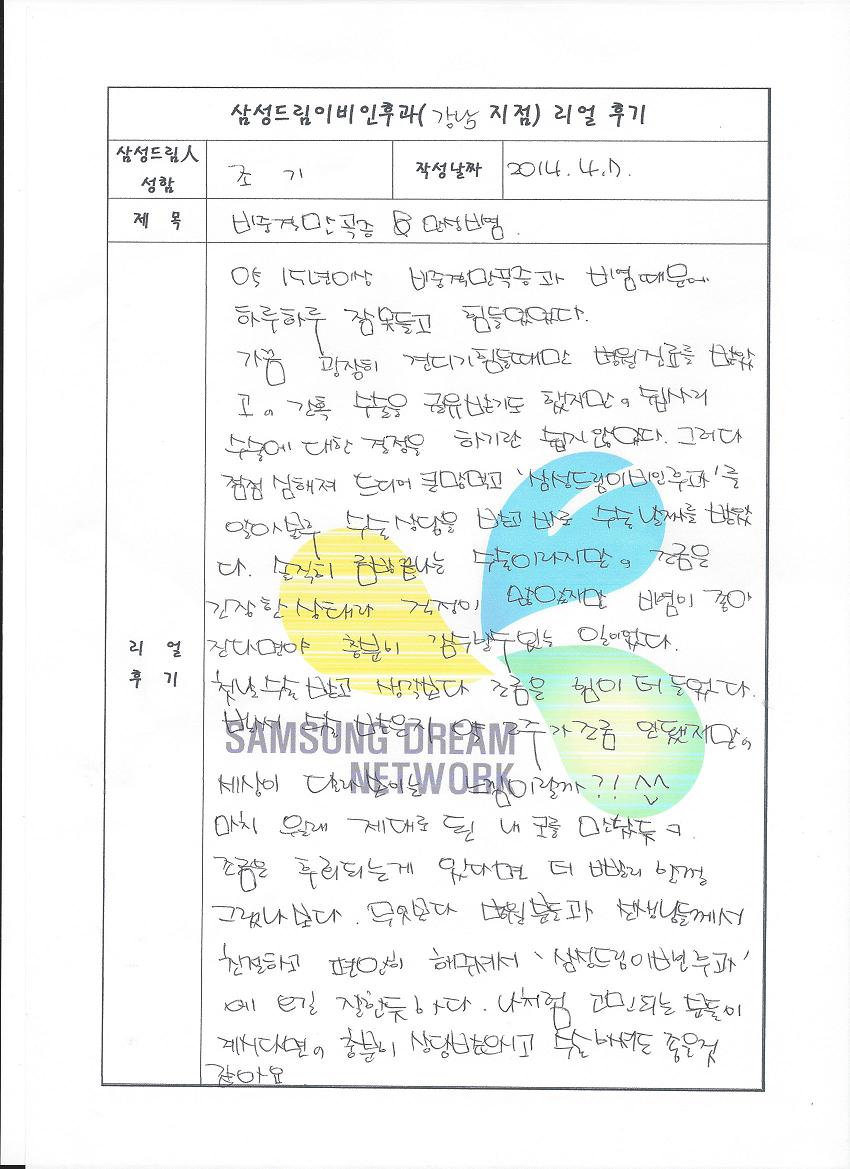 삼성드림이비인후과( 강남 지점) 리얼 후기
삼성드림人 성함
조 기
작성날짜
2014. 4. 17.
제 목
비중격만곡증 & 만성비염.
리 얼 후 기
약 15년이상 비중격만곡증과 비염때문에
하루하루 잠못들고 힘들었었다.
가끔 굉장히 견디기힘들때만 병원진료를 받았
고. 간혹 수술을 권유받기도 했지만. 쉽사리
수술에 대한 결정을 하기란 쉽지 않았다. 그러다
점점 심해져 드디어 큰맘먹고 '삼성드림이비인후과'를
알아보구 수술상담을 받고 바로 수술날짜를 받았
다. 솔직히 금방끝나는 수술이라지만. 조금은
긴장한상태라 걱정이 많았지만 비염이 좋아
진다면야 충분이 감수할수있는 일이었다.
첫날수술받고 생각보다 조금은 힘이 더 들었다.
수술 받은지 약 2주가조금 안됐지만.
SAMSUNG DREAM
NETWORK
세상이 달라보이는 느낌이랄까?! ^^
마치 원래 제대로 된 내 코를 찾은듯ㅋ.
조금은 후회되는게 있다면 더 빨리 할껄
그랬나보다. 무엇보다 병원분들과 선생님들께서
친절하고 편안히 해주셔서 '삼성드림이비인후과'
에 오길 잘한듯하다. 나처럼 고민되는 분들이
계시다면. 충분이 상담받으시고 수술하셔도 좋을것
같아요